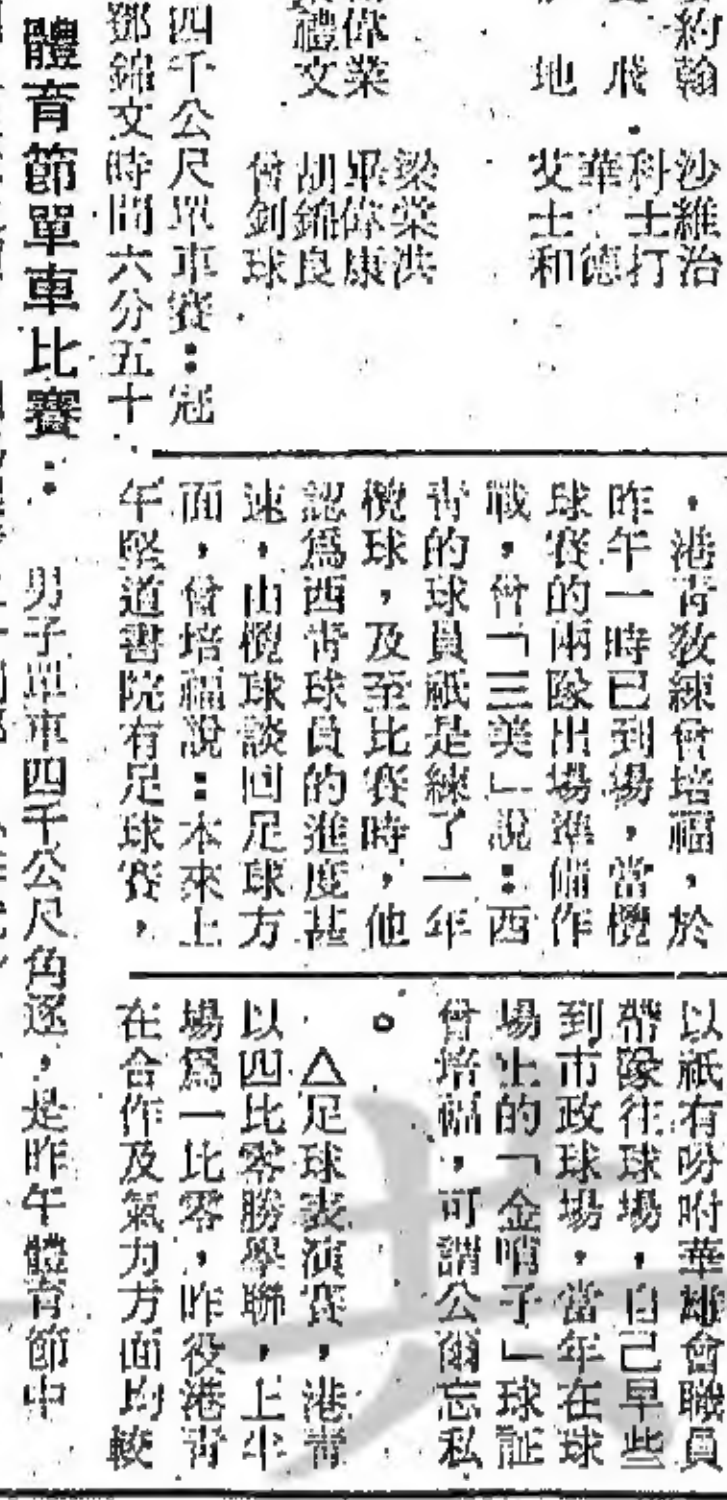 約翰 沙維治
飛 科士打
華 德
地 艾士和
梁棠洪
偉業 畢偉康
禮文 胡錦良
曾釗球
四千公尺單車賽：冠
鄧錦文時間六分五十
，港青教練曾培福，於
昨午一時已到場，當欖
球賽的兩隊出場準備作
戰，曾「三美」說：西
青的球員祇是練了一年
欖球，及至比賽時，他
認爲西青球員的進度甚
速，由欖球談回足球方
面，曾培福說：本來上
午堅道書院有足球賽，
以祇有吩咐華雄會職員
帶隊往球場，自己早些
到市政球場，當年在球
場上的「金哨子」球証
曾培福，可謂公爾忘私
。
△足球表演賽，港青
以四比零勝學聯，上半
場爲一比零，昨役港青
在合作及氣力方面均較
體育節單車比賽： 男子單車四千公尺角逐，是昨午體育節中